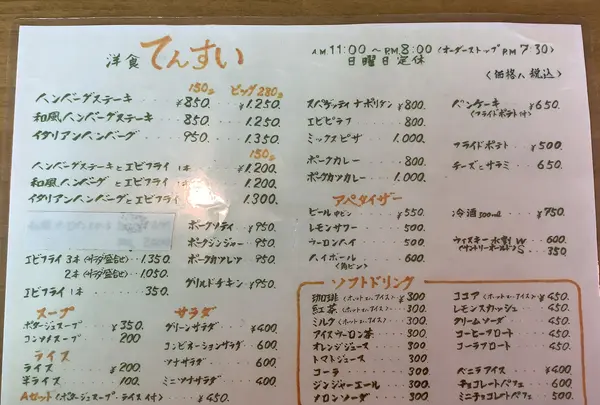 洋食 てんすい
A.M.11:00〜P.M.8:00(オーダーストップP.M 7:30)
日曜日定休
(価格ハ税込)
150g ビッグ280g
ハンバーグステーキ ¥850. ¥1.250
和風ハンバーグステーキ 850. 1.250
イタリアンハンバーグ 950. 1.350
150g
ハンバーグステーキとエビフライ1本 ¥1.200
和風ハンバーグとエビフライ1本 1.200
イタリアンハンバーグとエビフライ 1.300
ポークソティ ¥950
ポークジンジャー ¥950
ポークカツレツ ¥950
グリルドチキン ¥950
エビフライ 3本 1.350
2本 1.050
エビフライ 1本 350.
スープ
ポタージュスープ ¥350.
コンソメスープ 200
ライス
ライス ¥200
半ライス 100
Aセット(ポタージュスープ ライス付) ¥450
サラダ
グリーンサラダ ¥400
コンビネーションサラダ 600
ツナサラダ 600
ミニツナサラダ 400
スパゲッティナポリタン ¥800
エビピラフ 800
ミックスピザ 1.000
ポークカレー 800
ポークカツカレー 1.000
パンケーキ ¥650
(フライドポテト付)
フライドポテト ¥500
チーズとサラミ 650
アペタイザー
ビール 中ビン ¥550
レモンサワー 500
ウーロンハイ 500
ハイボール 600
(角ビン)
冷酒 300ml ¥750
ウィスキー水割 W 600
(サントリーオールド) S 350
ソフトドリンク
珈琲(ホット or アイス) ¥300
紅茶(ホット or アイス) 300
ミルク(ホット or アイス) 300
アイスウーロン茶 300
オレンジジュース 300
トマトジュース 300
コーラ 300
ジンジャーエール 300
メロンソーダ 300
ココア(ホット or アイス) ¥450
レモンスカッシュ 450
クリームソーダ 450
コーヒーフロート 450
コーラフロート 450
バニラアイス ¥400
チョコレートパフェ 600
ミニチョコレートパフェ 500